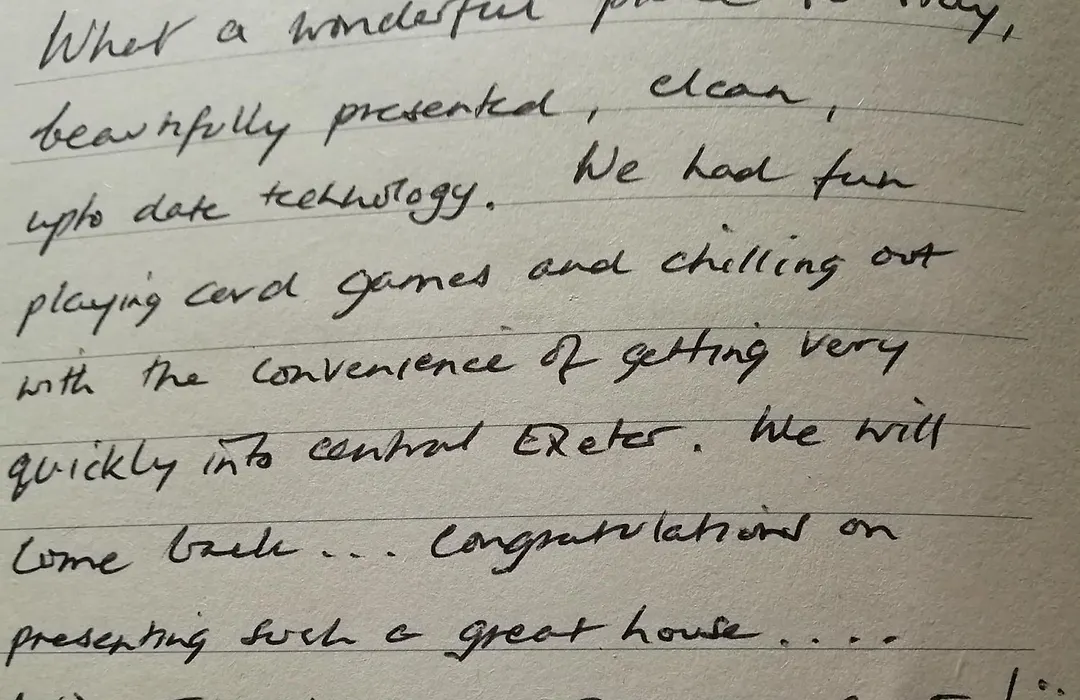 What a wonderful place to stay,
beautifully presented, clean,
upto date technology. We had fun
playing card games and chilling out
with the convenience of getting very
quickly into central Exeter. We will
come back... Congratulations on
presenting such a great house....